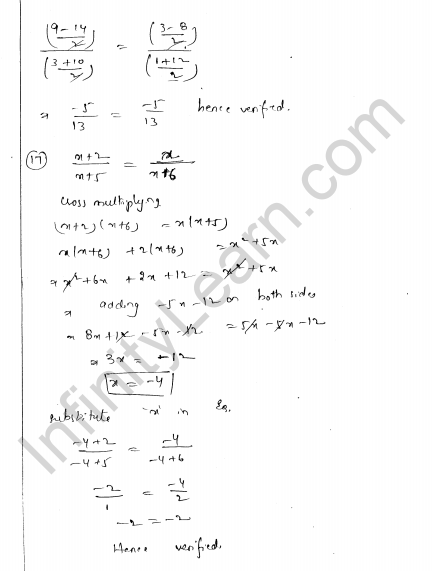 (9-14/2)/(3+10/2) = (3-8/2)/(1+12/2)
⇒ -5/13 = -5/13 hence verified.
(17) x+2/x+5 = x/x+6
Cross multiplying
(x+2)(x+6) = x(x+5)
x(x+6) + 2(x+6) = x²+5x
⇒ x²+6x + 2x+12 = x²+5x
⇒ adding -5x-12 on both sides
⇒ 8x+12-5x-12 = 5x-5x-12
⇒ 3x = -12
x = -4
substitute 'x' in Eq.
-4+2/-4+5 = -4/-4+6
-2/1 = -4/2
-2 = -2
Hence verified.
InfinityLearn.com